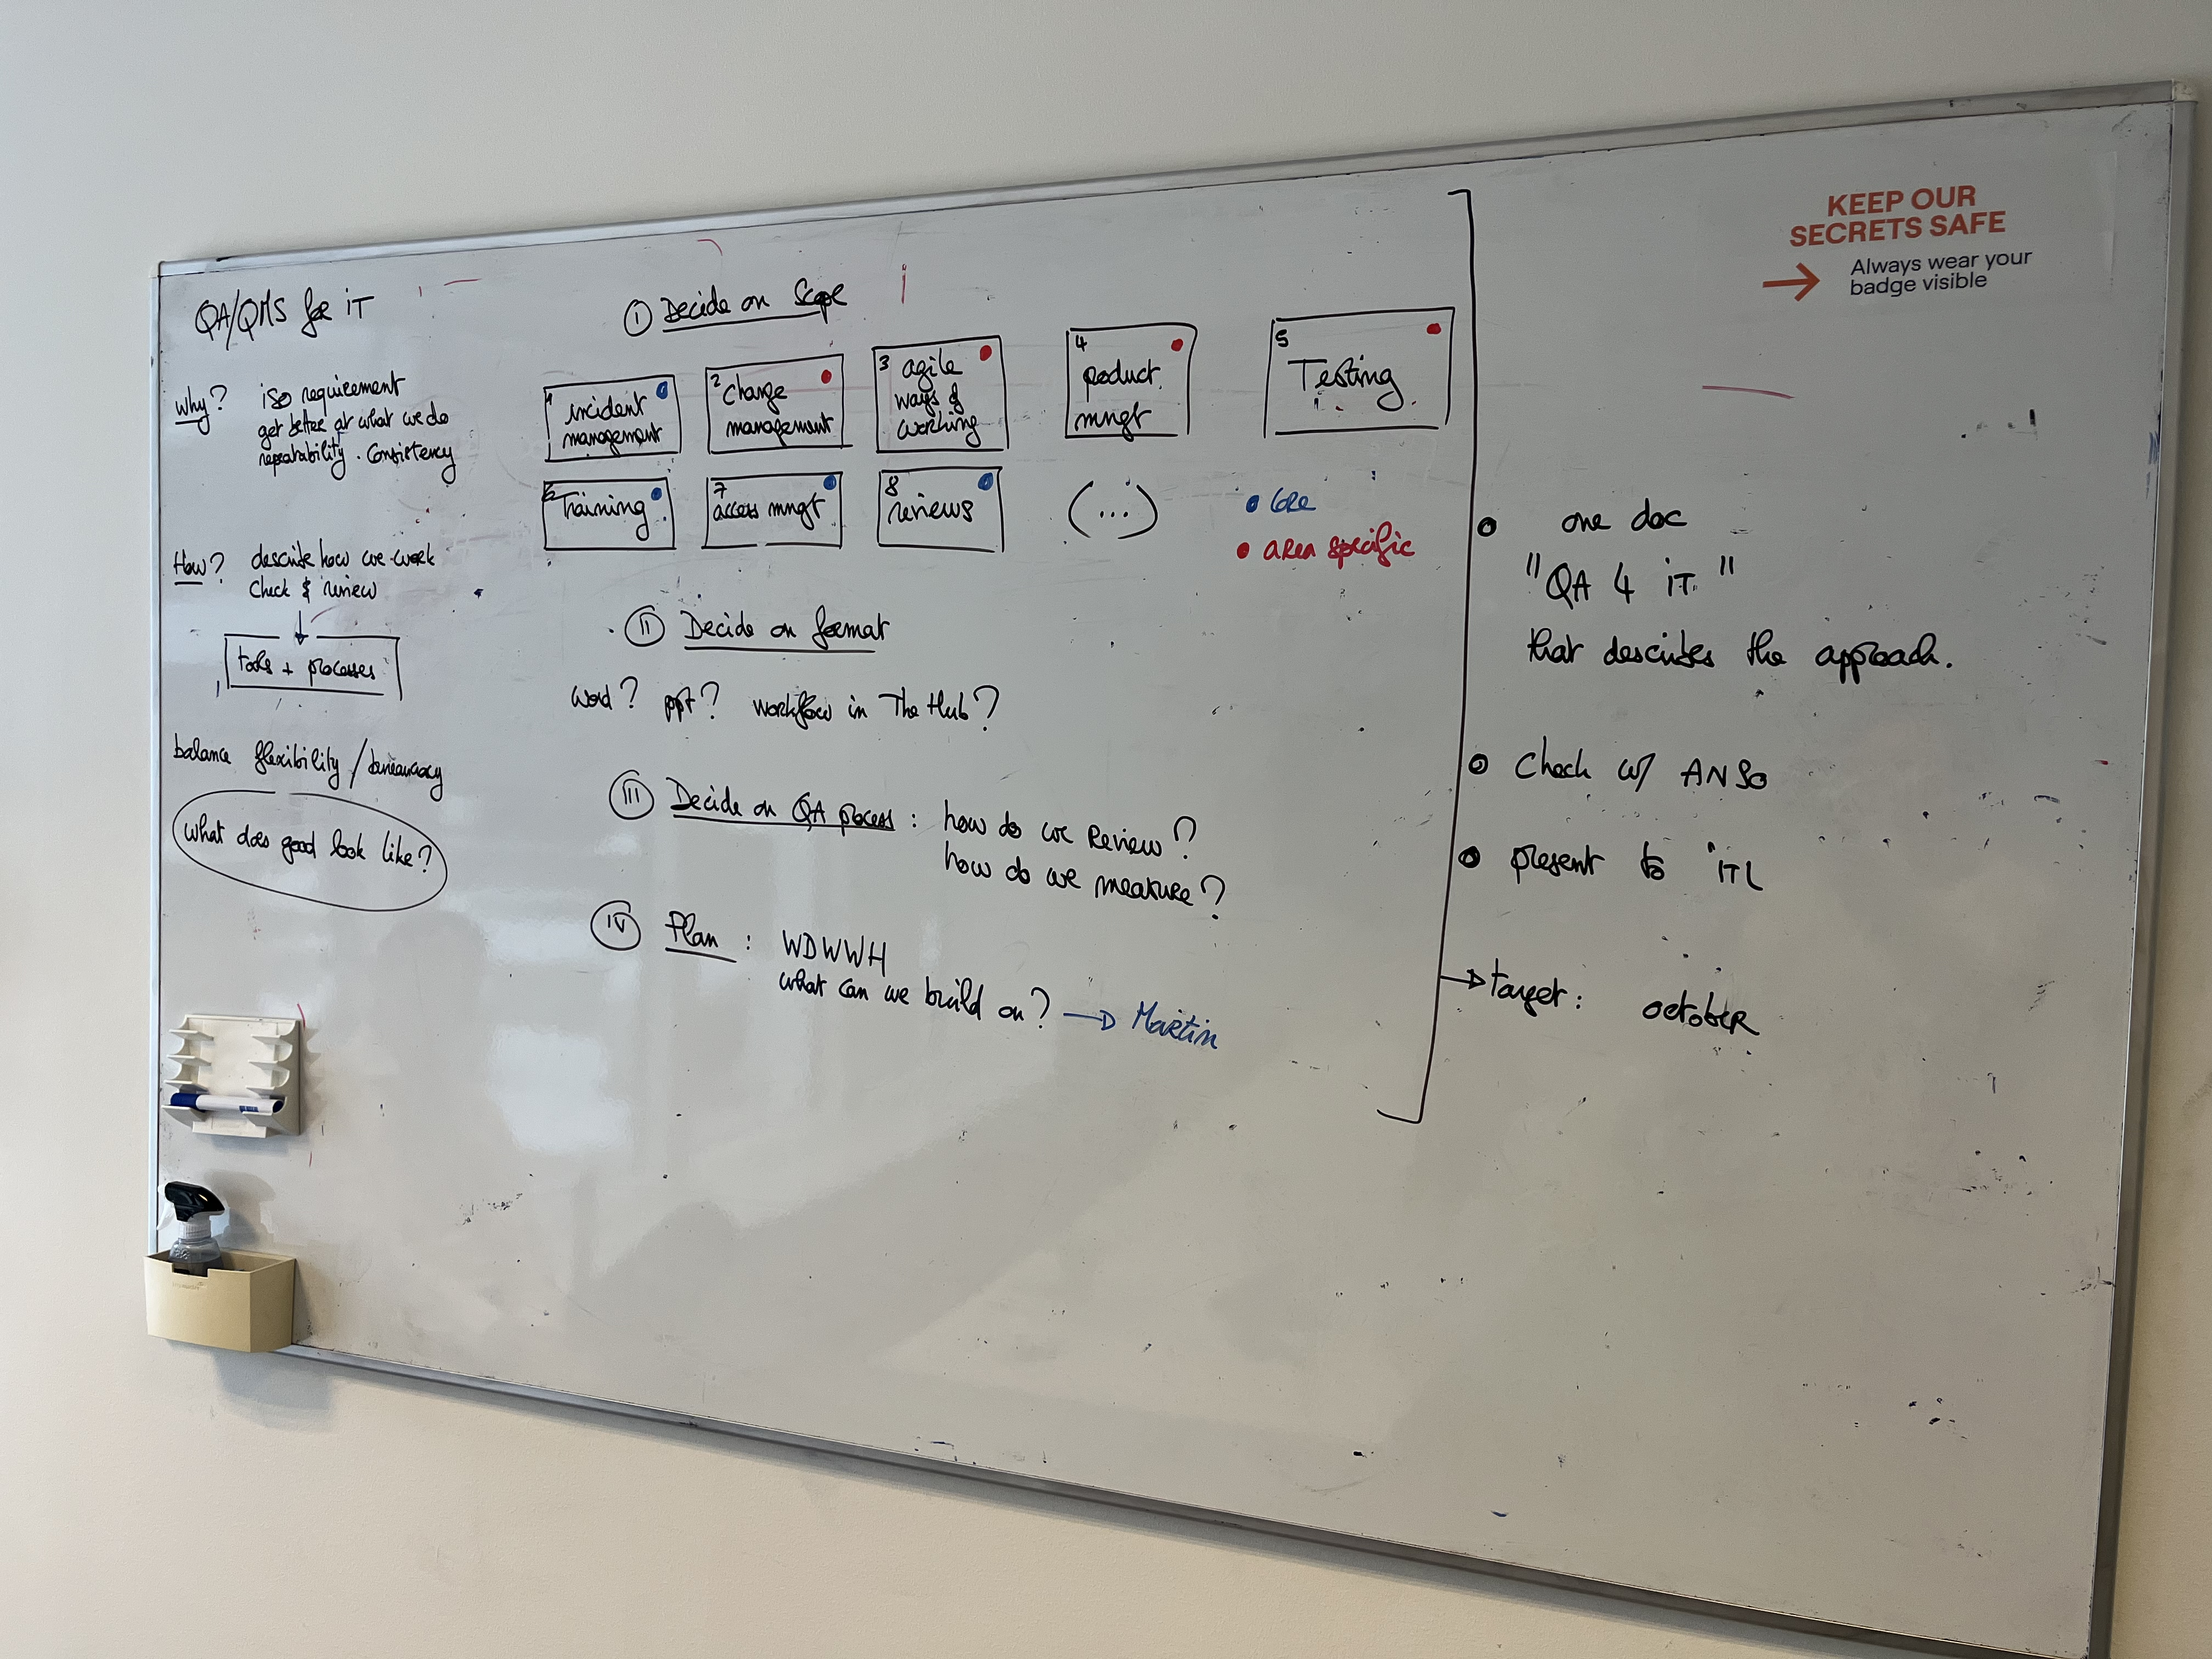 QA/QMS for iT
Why?
iso requirement
get better at what we do
repeatability . Consistency
How?
describe how we work
Check & review
tools + processes
balance flexibility / bureaucracy
what does good look like?
I Decide on Scope
1 incident
management
2 Change
management
3 agile
ways of
working
4
product
mngt
5
Testing
6 Training
7
access mngt
8
reviews
(...)
• Core
• area specific
II Decide on format
word? ppt? workflow in The Hub?
III Decide on QA process : how do we Review?
how do we measure?
IV Plan : WDWWH
what can we build on? → Martin
• one doc
"QA 4 iT"
that describes the approach.
• Check w/ ANSO
• present to iTL
→ target: october
KEEP OUR
SECRETS SAFE
→ Always wear your
badge visible